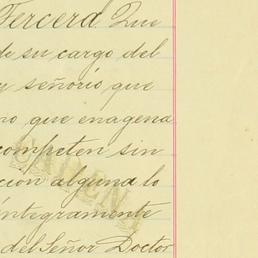 Tercera Que
de su cargo del
y señorío que
no que enagena
competen sin
cion alguna lo
integramente
del Señor Doctor
CADENA